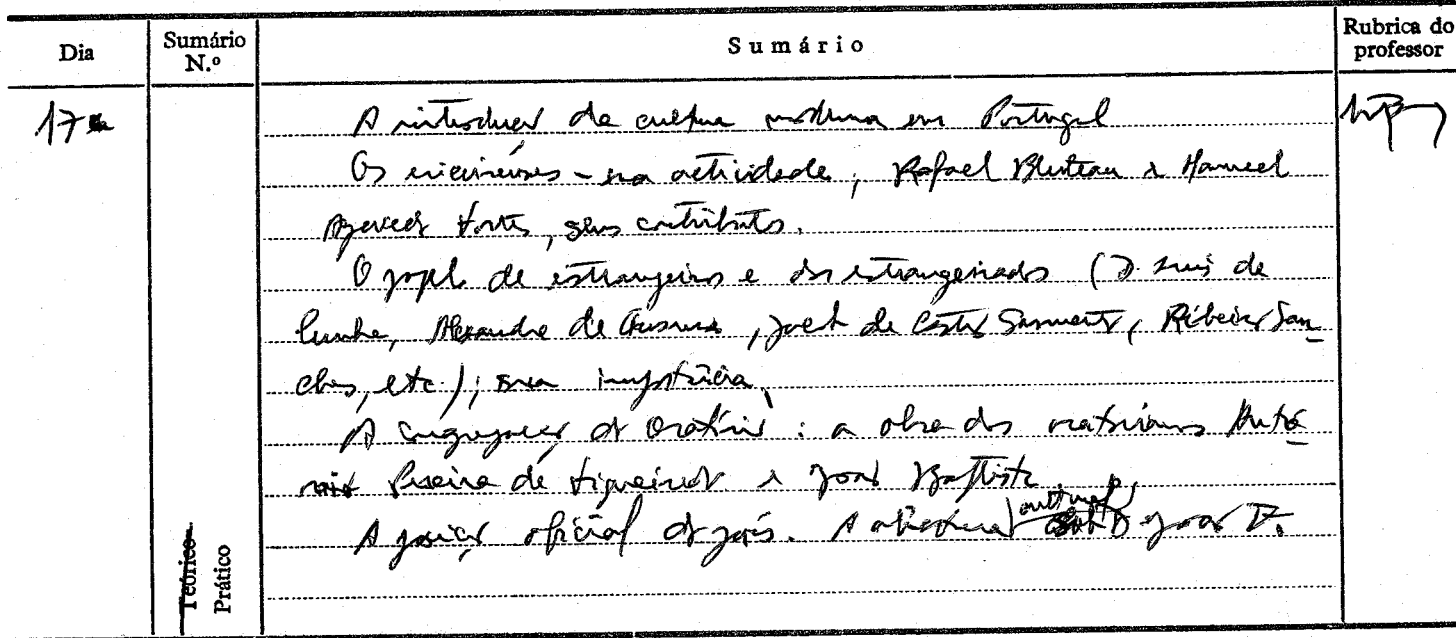 Dia
Sumário N.º
Sumário
Rubrica do professor
17
A introdução da cultura moderna em Portugal
Os ericeirenses - sua actividade; Rafael Bluteau e Manuel
Azevedo Fortes, seus contributos.
O papel de estrangeiros e dos estrangeirados (D. Luís da
Cunha, Alexandre de Gusmão, Jacob de Castro Sarmento, Ribeiro San_
ches, etc.); sua importância.
A congregação do Oratório: a obra dos oratorianos Antó_
nio Pereira de Figueiredo e João Baptista
A posição oficial do país. A abertura cultural D. João V.
Teórico
Prático